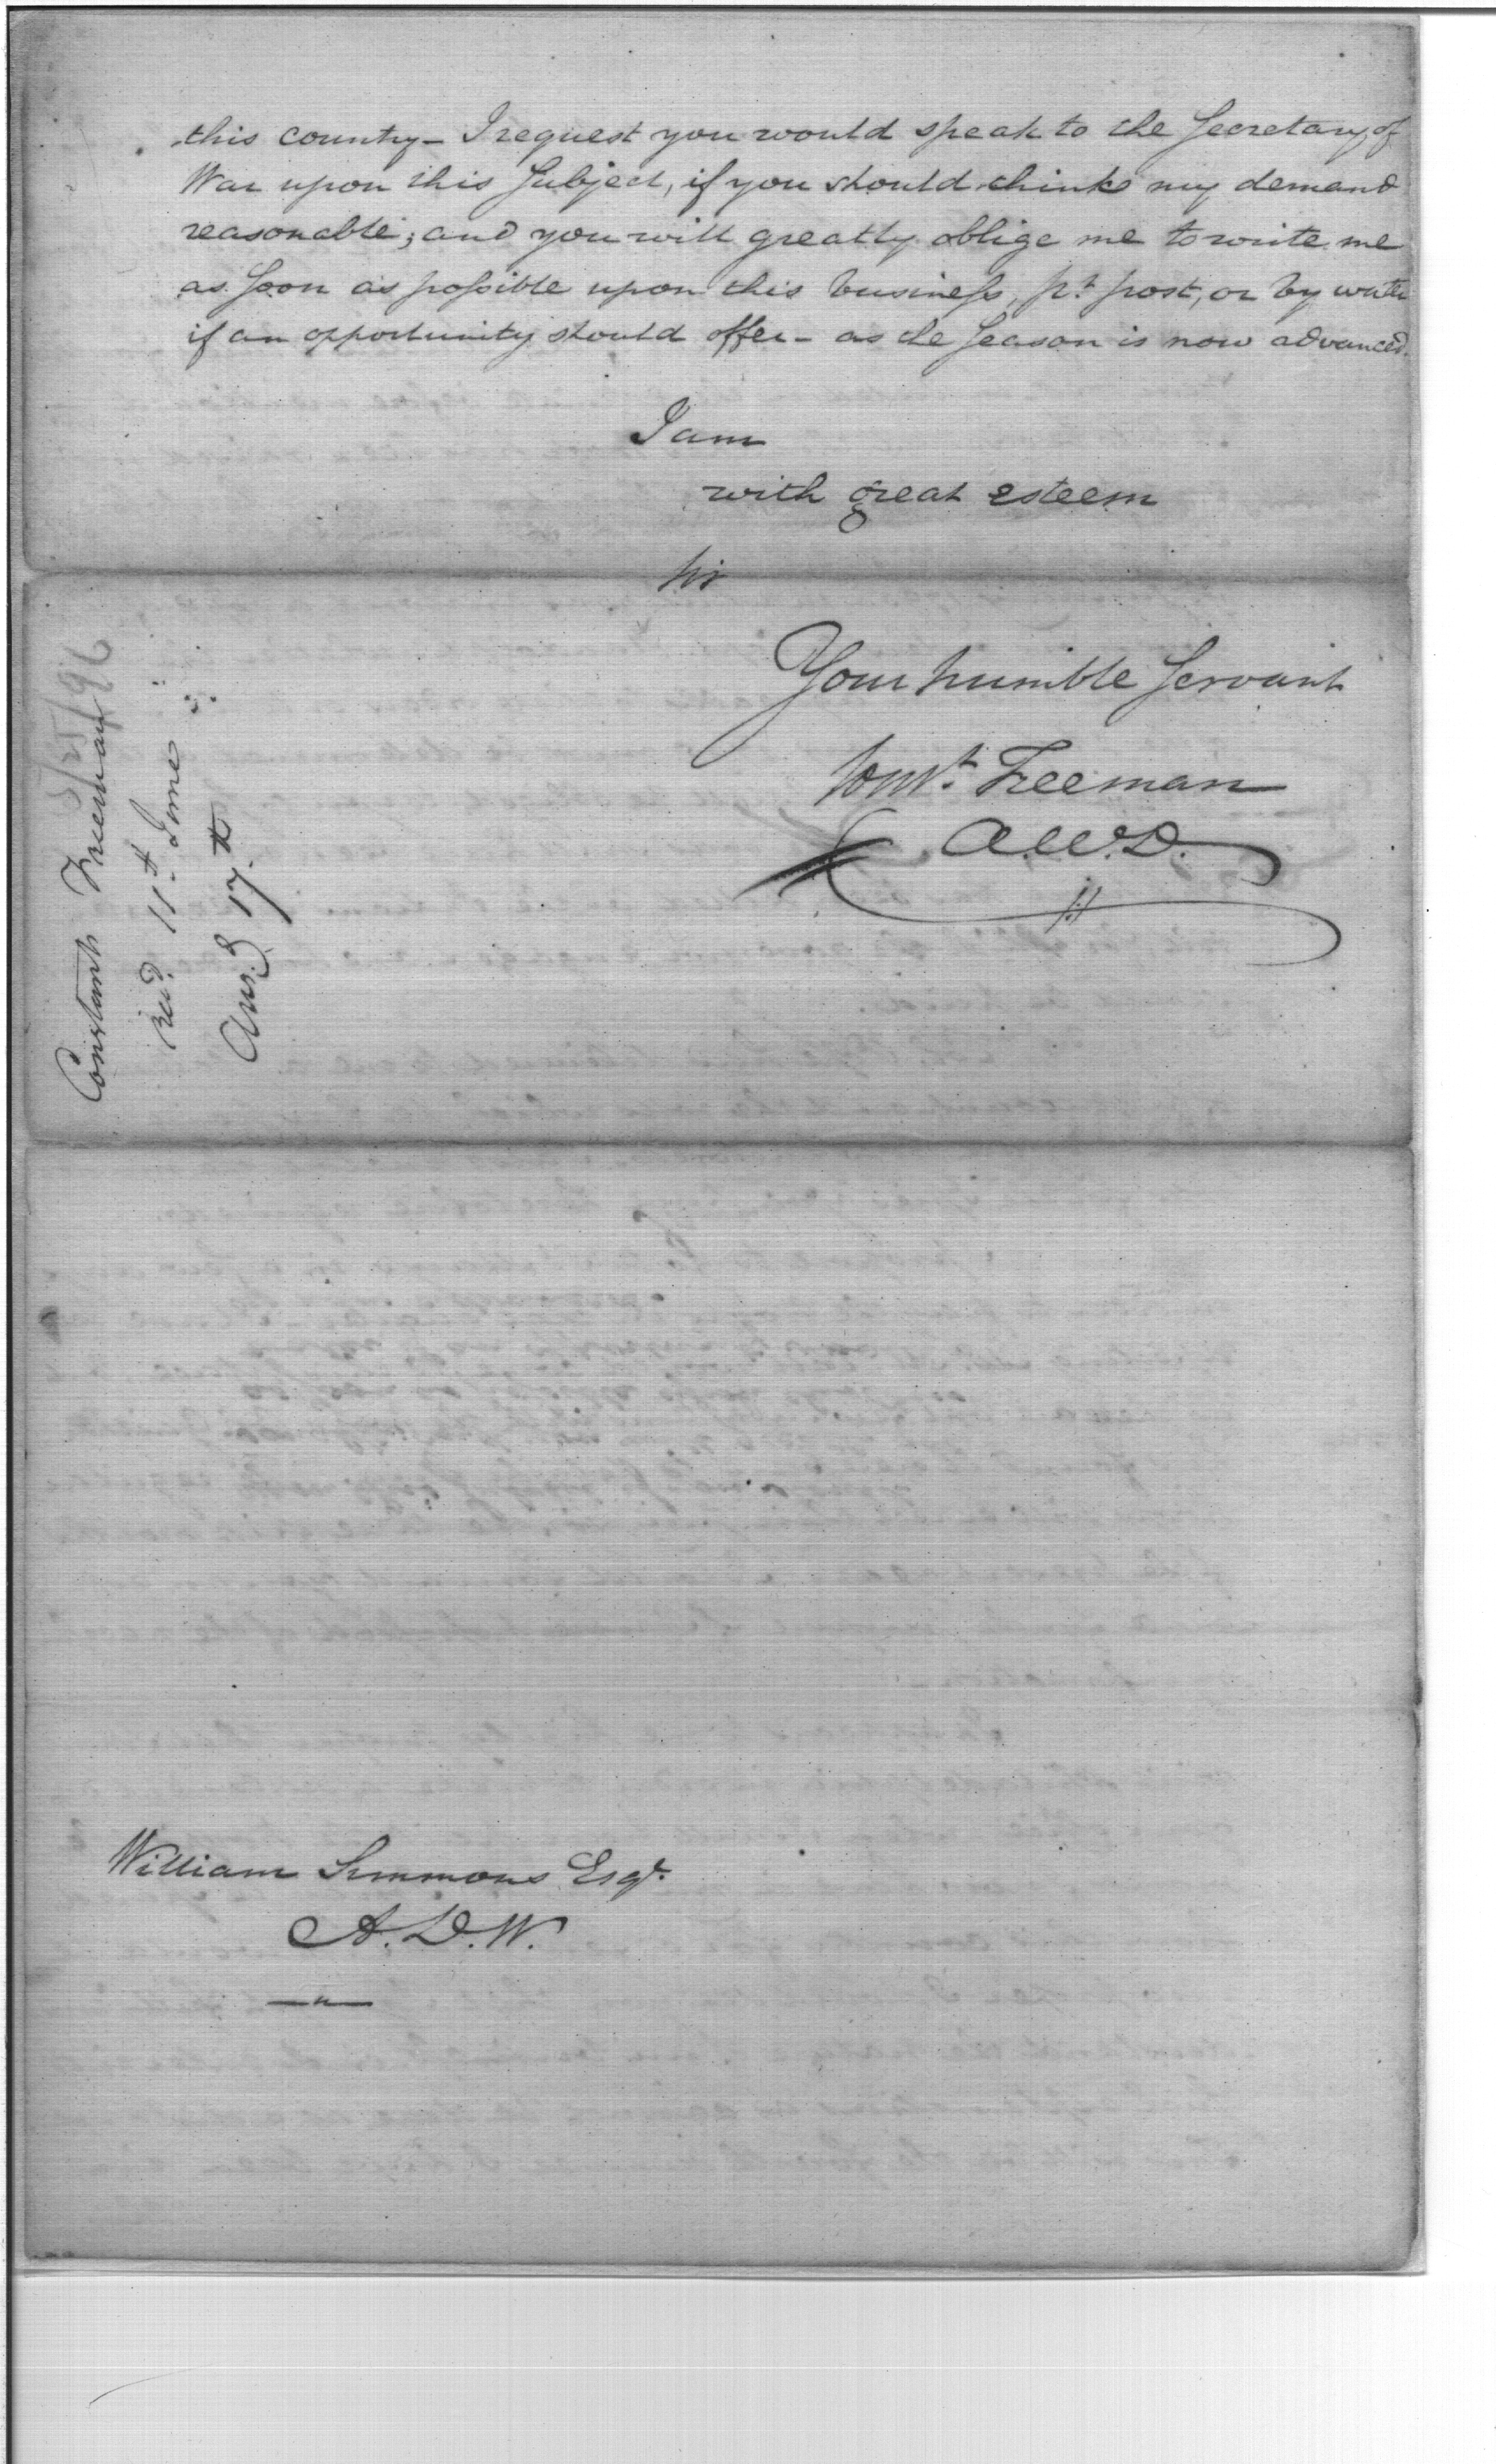 this country – I request you would speak to the Secretary of
War upon this Subject, if you should think my demand
reasonable; and you will greatly oblige me to write me
as soon as possible upon this business, pr. post, or by water
if an opportunity should offer – as the Season is now advanced.
I am
with great esteem
Sir
Your humble Servant
Const. Freeman
A.W.D.
Constant Freeman
recd. 11th June
Ansd 17th
William Simmons Esqr.
A.D.W.